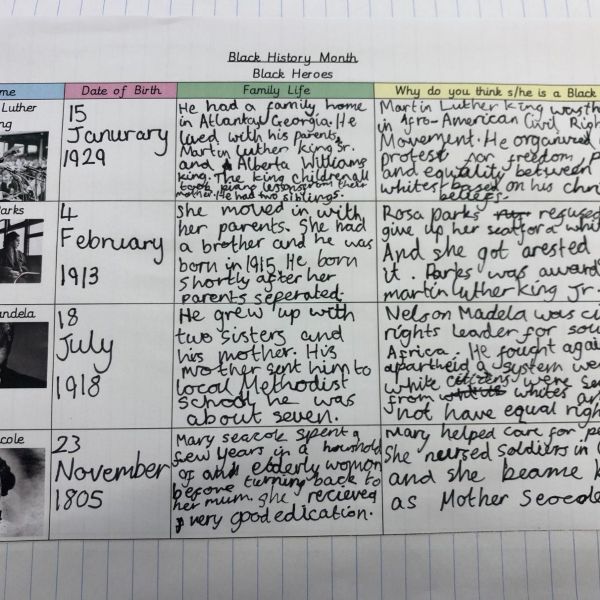 Black History Month
Black Heroes
me
Date of Birth
Family Life
Why do you think s/he is a Black
Luther
ng
15
Janurary
1929
He had a family home
in Atlanta, Georgia. He
lived with his parents,
Martin Luther King Sr.
and Alberta Williams
King. The King children all
took piano lessons from their
mother. He had two siblings.
Martin Luther King was th
in Afro-American Civil Righ
Movement. He organized
protest for freedom, p
and equality between
whites based on his chri
beliefs.
arks
4
February
1913
She moved in with
her parents. She had
a brother and he was
born in 1915. He born
shortly after her
parents seperated
Rosa parks refused
give up her seat for a whit
And she got arested
it. Parks was award
martin luther king Jr.
andela
18
July
1918
He grew up with
two sisters and
his mother. His
mother sent him to
local Methodist
school he was
about seven.
Nelson Madela was ci
rights leader for sou
Africa. He fought agai
apartheid a system we
white citizens were se
from whites an
not have equal righ
cole
23
November
1805
Mary seacole spent a
few years in a household
of an elderly woman
before turning back to
her mum. She recieved
very good edication.
Mary helped care for pe
She nursed soldiers in C
and she beame k
as Mother Seocole